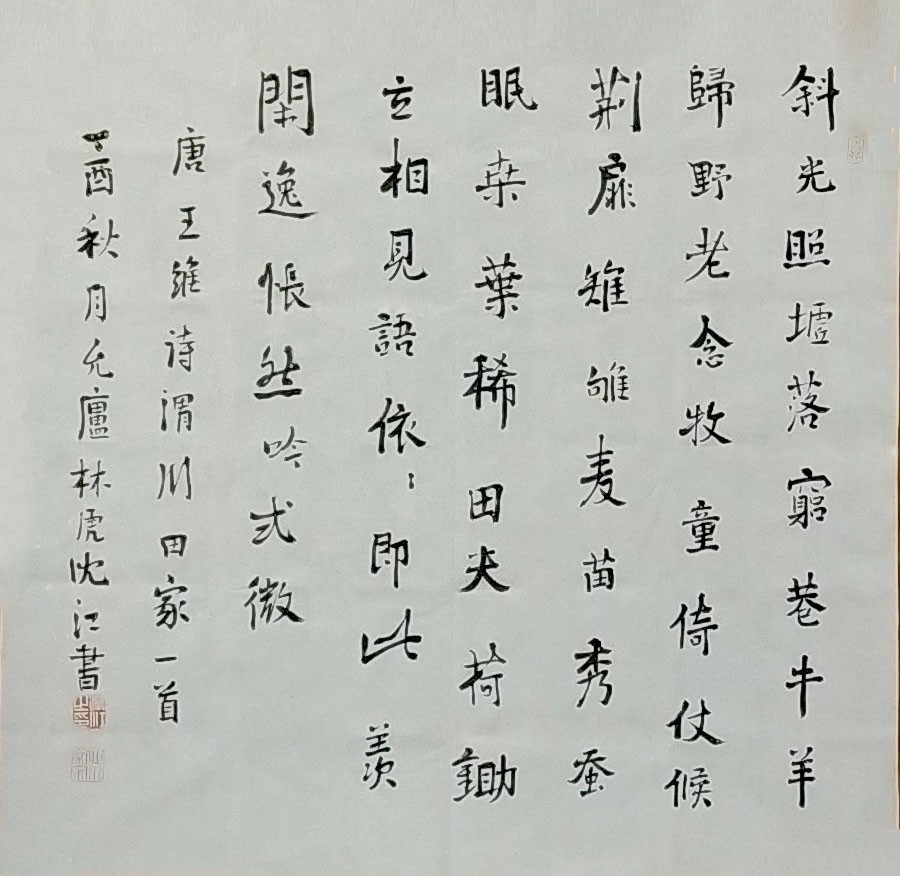 斜光照墟落窮巷牛羊
歸野老念牧童倚仗候
荆扉雉雊麦苗秀蚕
眠桒葉稀田夫荷鋤
立相見語依〻即此羡
閑逸悵然吟式微
唐王維诗渭川田家一首
酉秋月廬林虎沈江書